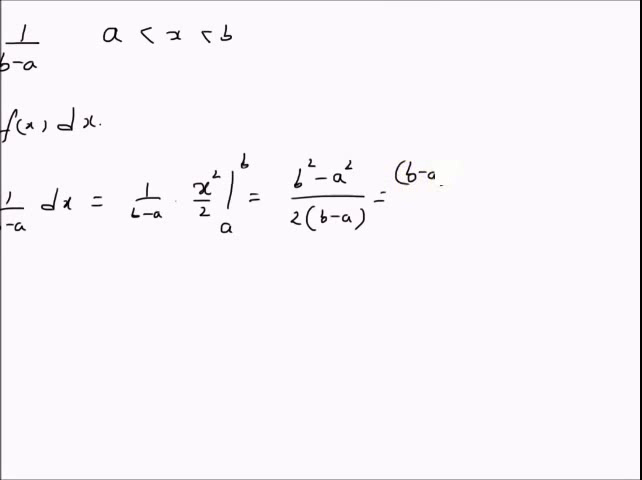 1/(b-a) a < x < b
f(x) dx.
1/(b-a) dx = 1/(b-a) · x²/2 |ₐᵇ = (b²-a²)/(2(b-a)) = (b-a